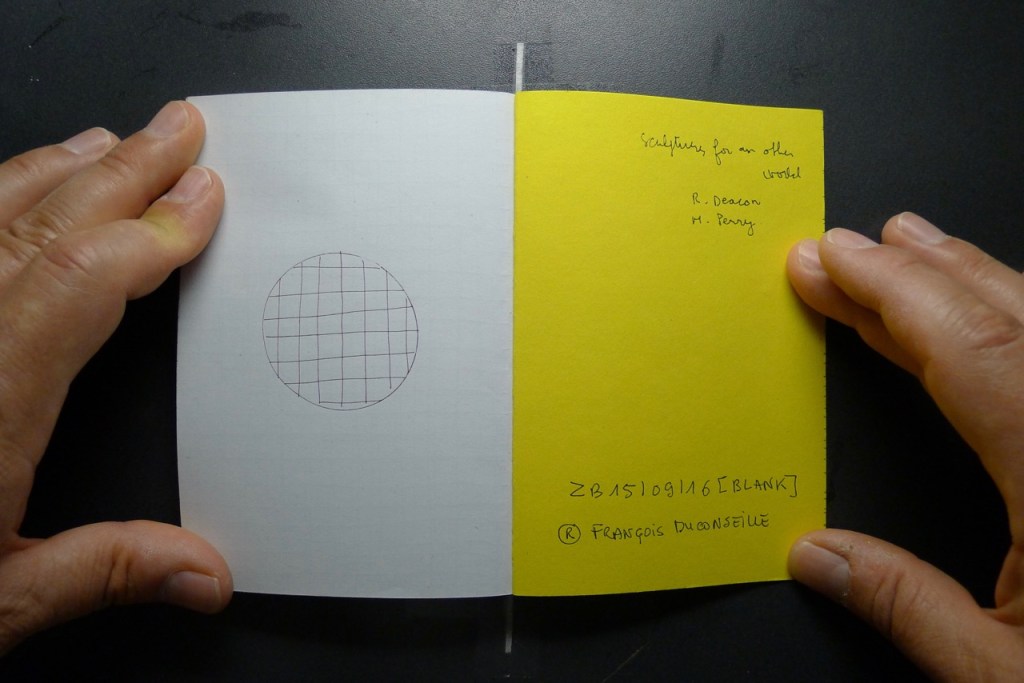 Sculptures for an other
world
R. Deacon
M. Perry
ZB 15/09/16 [BLANK]
® FRANÇOIS DUCONSEILLE